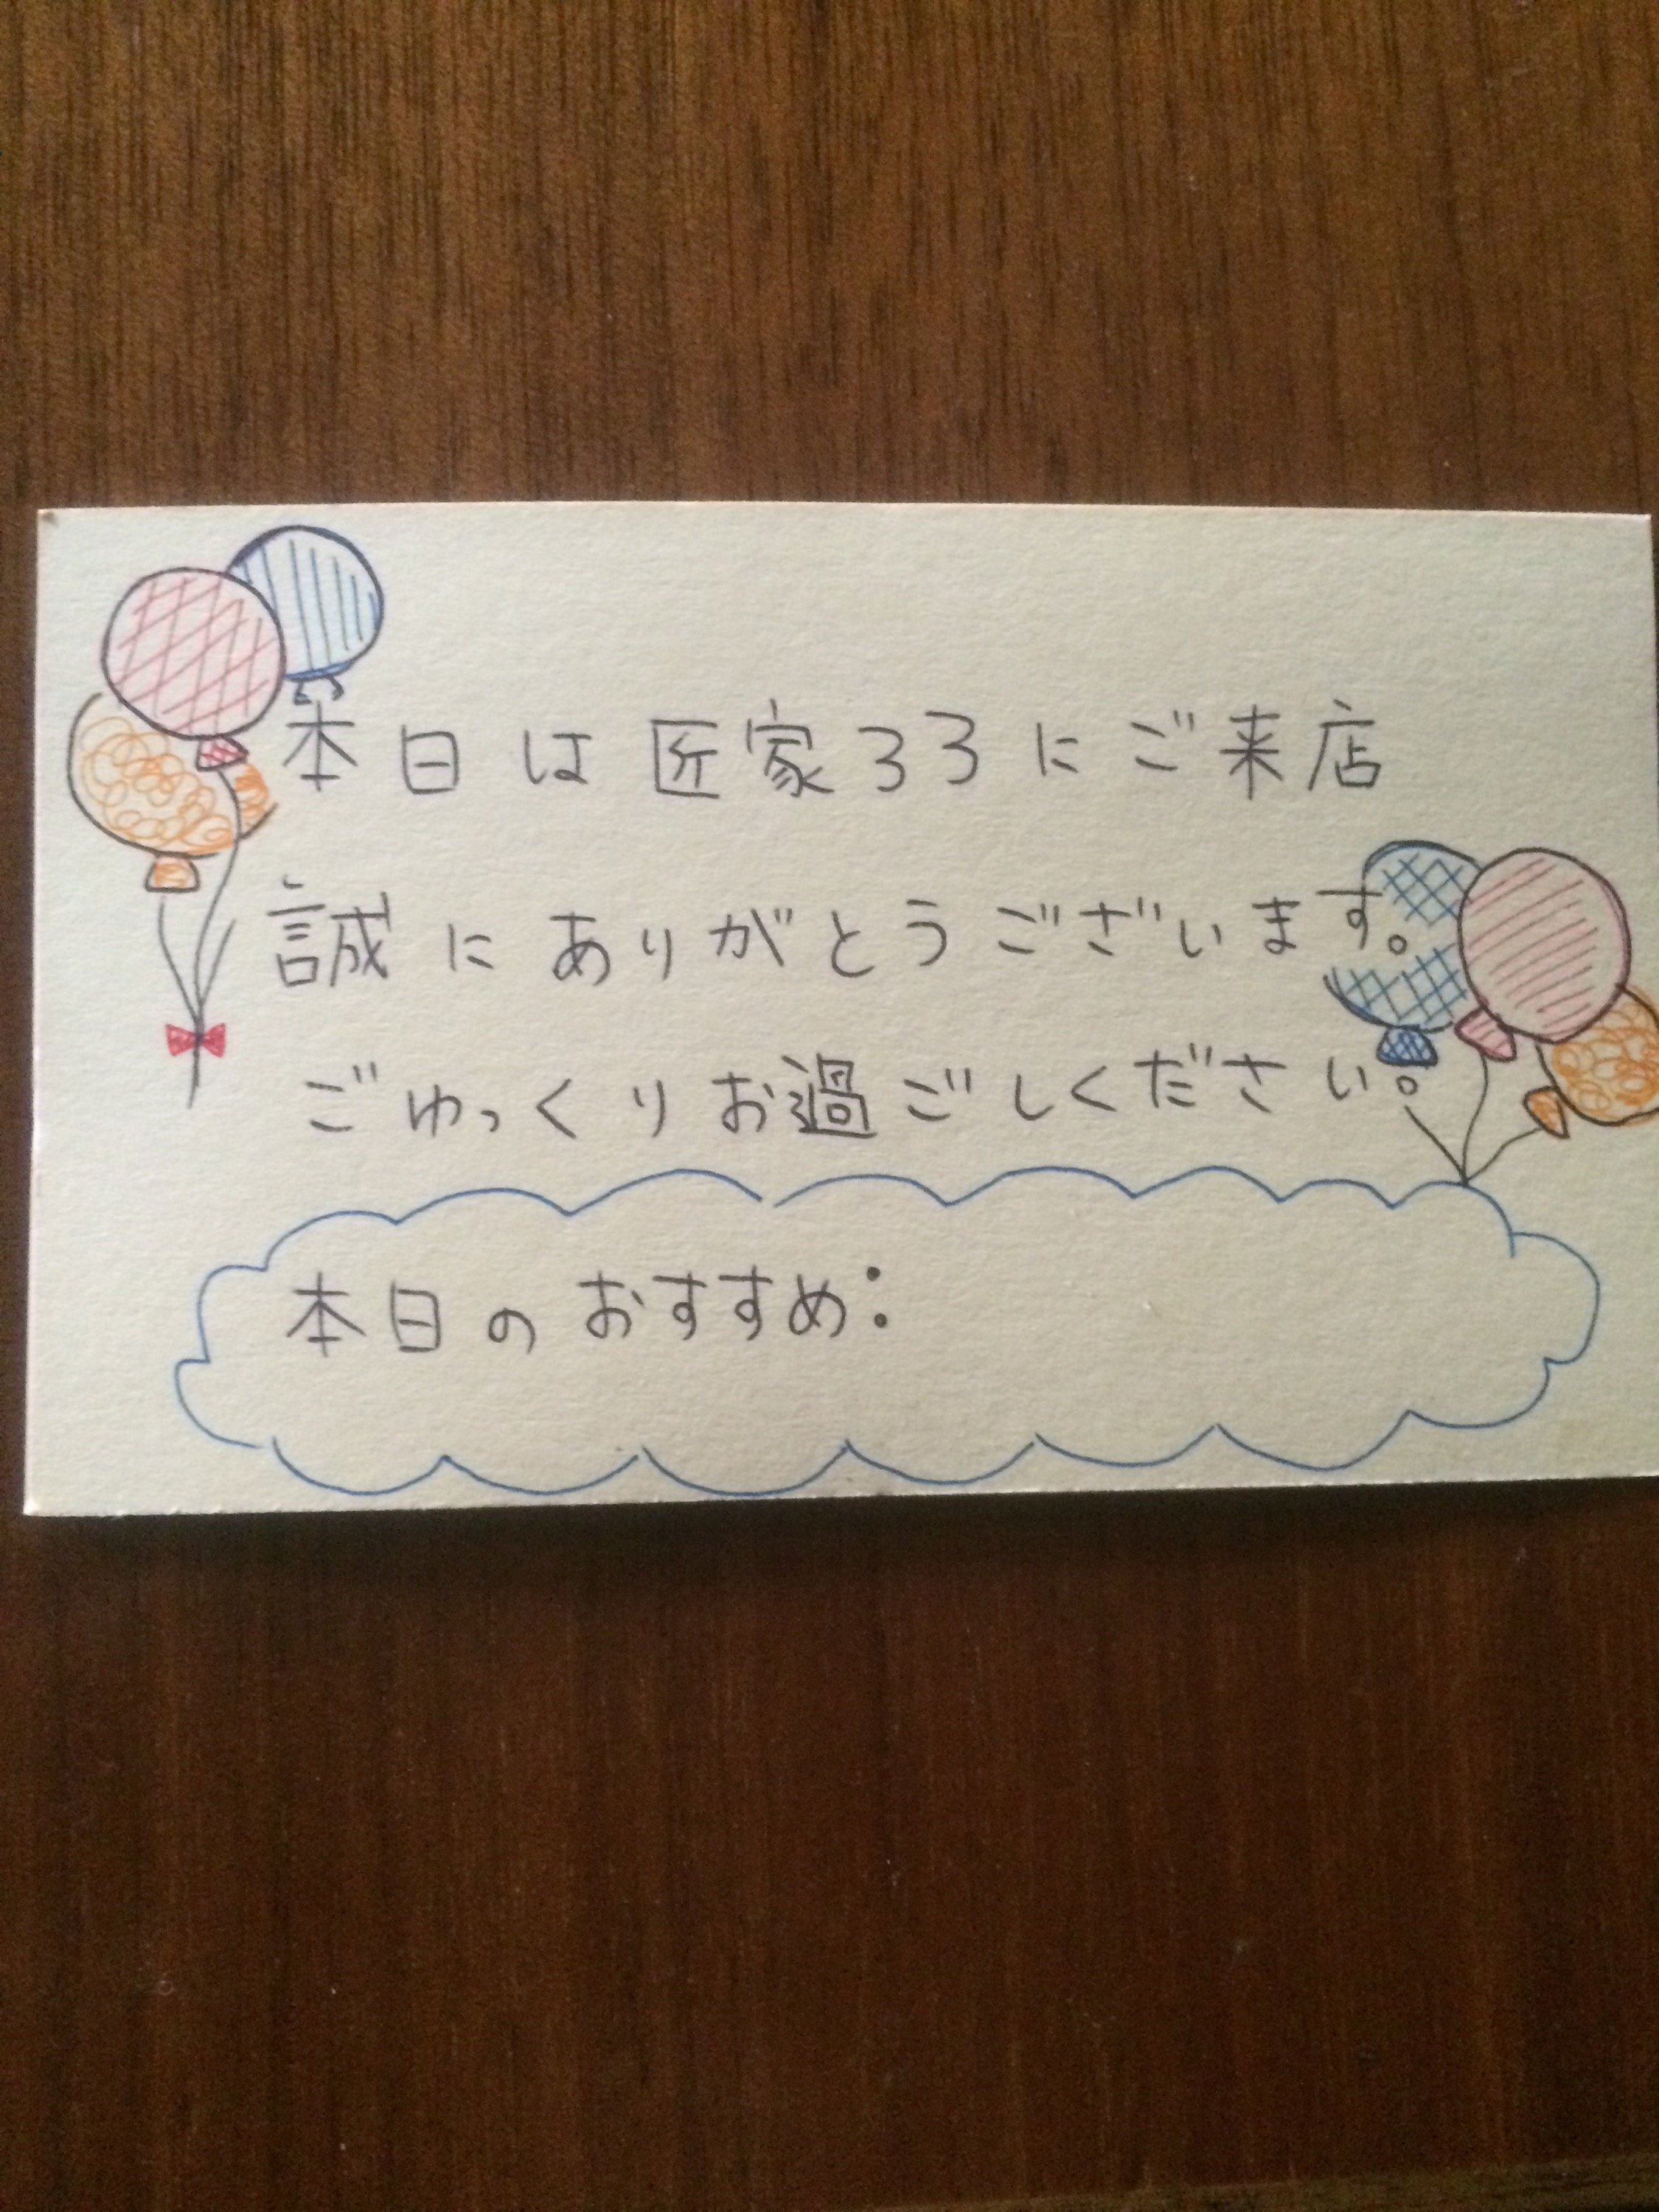 本日は匠家33にご来店
誠にありがとうございます。
ごゆっくりお過ごしください。
本日のおすすめ: